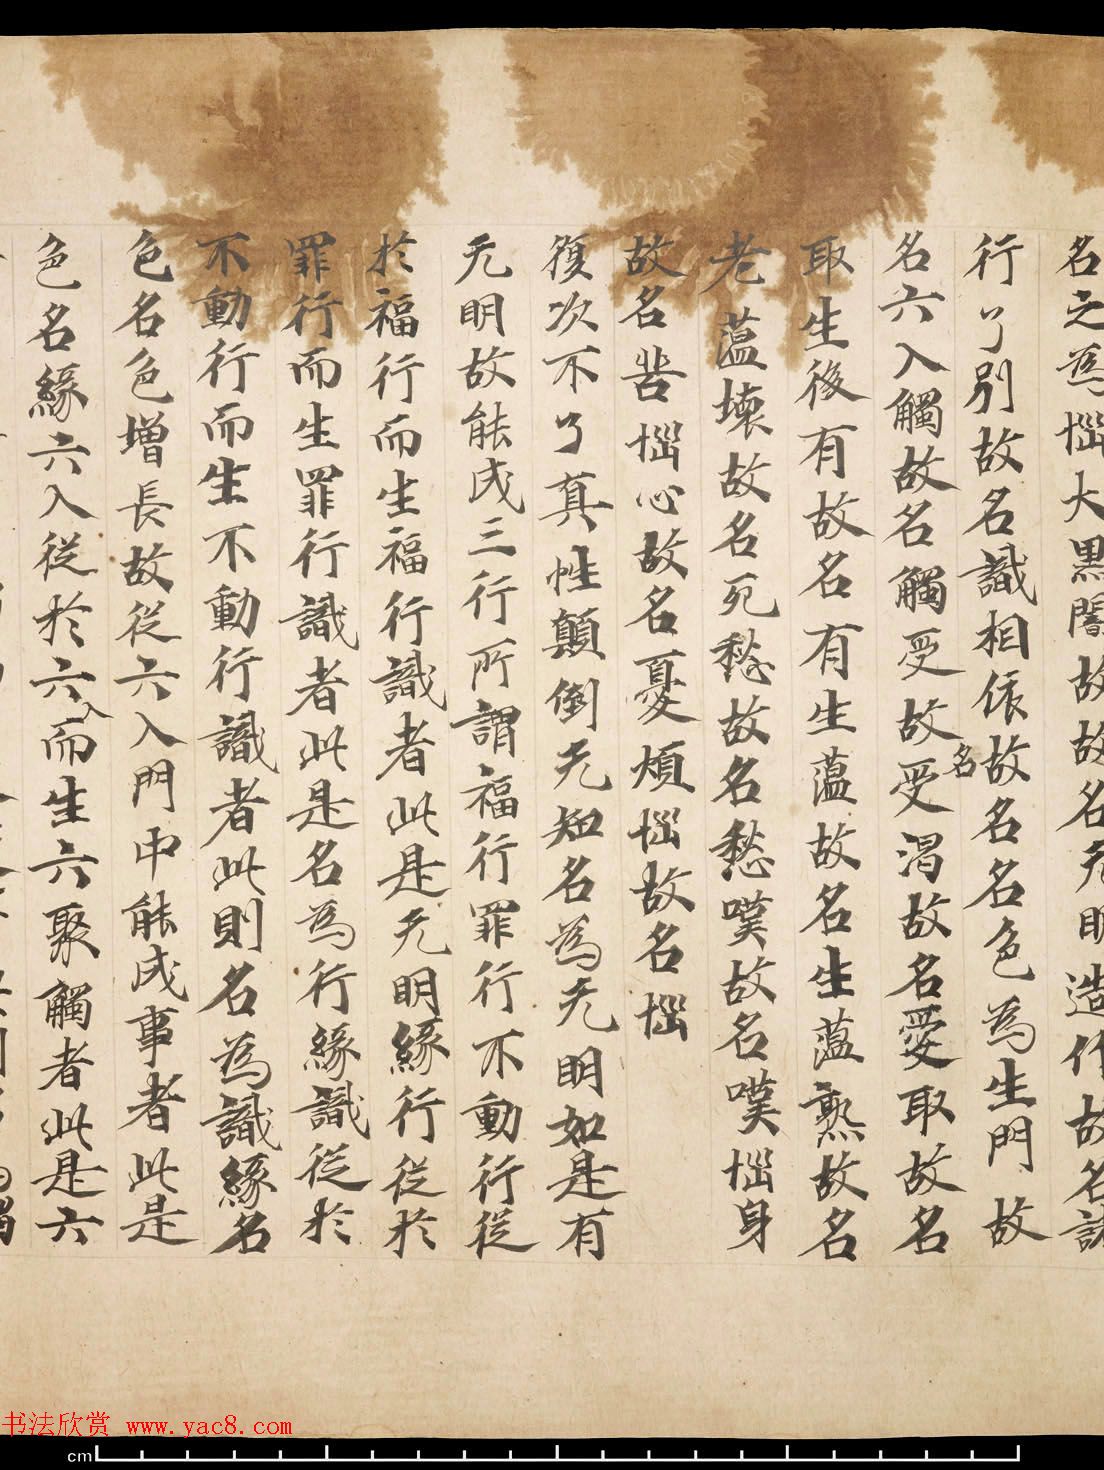 名之為惱大黑闇故故名无明造作故名諸
行了別故名識相依故名名色為生門故
名六入觸故名觸受故名受渴故名愛取故名
取生後有故名有生蘊故名生蘊熟故名
老蘊壞故名死愁故名愁嘆故名嘆惱身
故名苦惱心故名憂煩惱故名惱
復次不了真性顛倒无知名為无明如是有
无明故能成三行所謂福行罪行不動行從
於福行而生福行識者此是无明緣行從於
罪行而生罪行識者此是名為行緣識從於
不動行而生不動行識者此則名為識緣名
色名色增長故從六入門中能成事者此是
色名緣六入從於六入而生六聚觸者此是六
書法欣赏 www.yac8.com
cm